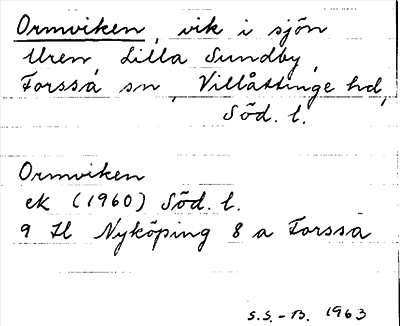 Ormviken, vik i sjön
Uren, Lilla Sundby,
Forssa sn, Villåttinge hd,
Söd. l.
Ormviken
ek (1960) Söd. l.
9 H Nyköping 8 a Forssa
S.S.-B. 1963